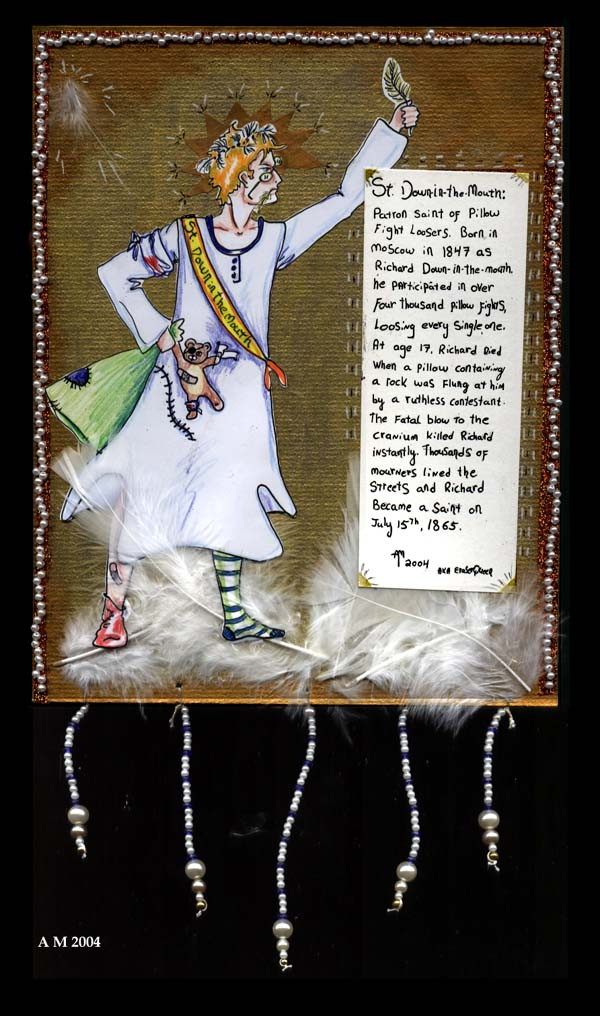 St. Down in the Mouth
St. Down-in-the-Mouth:
Patron Saint of Pillow
Fight Loosers. Born in
Moscow in 1847 as
Richard Down-in-the-mouth.
he participated in over
Four thousand pillow fights,
Loosing every single one.
At age 17, Richard Died
When a pillow containing
a rock was Flung at him
by a ruthless contestant.
The Fatal blow to the
cranium killed Richard
instantly. Thousands of
mourners lined the
Streets and Richard
Became a Saint on
July 15th, 1865.
AM 2004
AKA
A M 2004